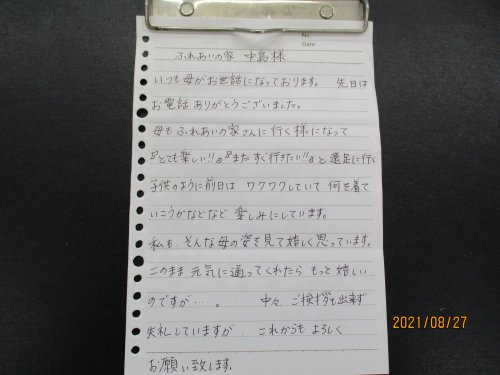 No.
Date
ふれあいの家 中島様
いつも母がお世話になっております。 先日は
お電話ありがとうございました。
母もふれあいの家さんに行く様になって
『とても楽しい!!』『またすぐ行きたい!!』と遠足に行く
子供のように前日は ワクワクしていて 何を着て
いこうかなどなど 楽しみにしています。
私も、そんな母の姿を見て嬉しく思っています。
このまま元気に通ってくれたら もっと嬉しい
のですが‥‥。 中々、ご挨拶も出来ず
失礼していますが、これからもよろしく
お願い致します。
2021/08/27